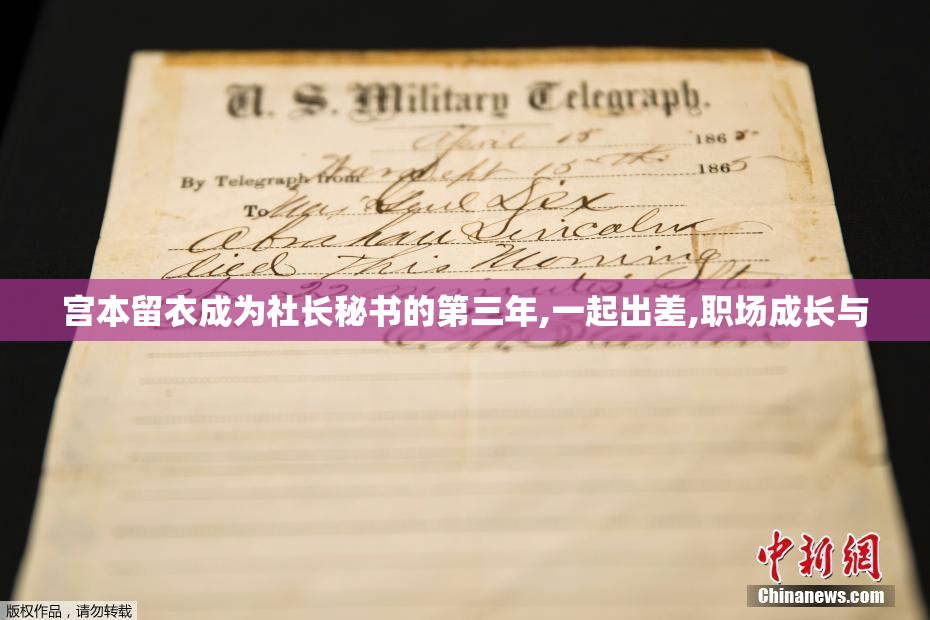 U. S. Military Telegraph.
April 15 1865
By Telegraph from War Dept 15th 1865
To Maj Genl Dix
Abraham Lincoln
died This Morning
at 22 minutes after
宫本留衣成为社长秘书的第三年,一起出差,职场成长与
E. M. Stanton
中新网
Chinanews.com
版权作品,请勿转载